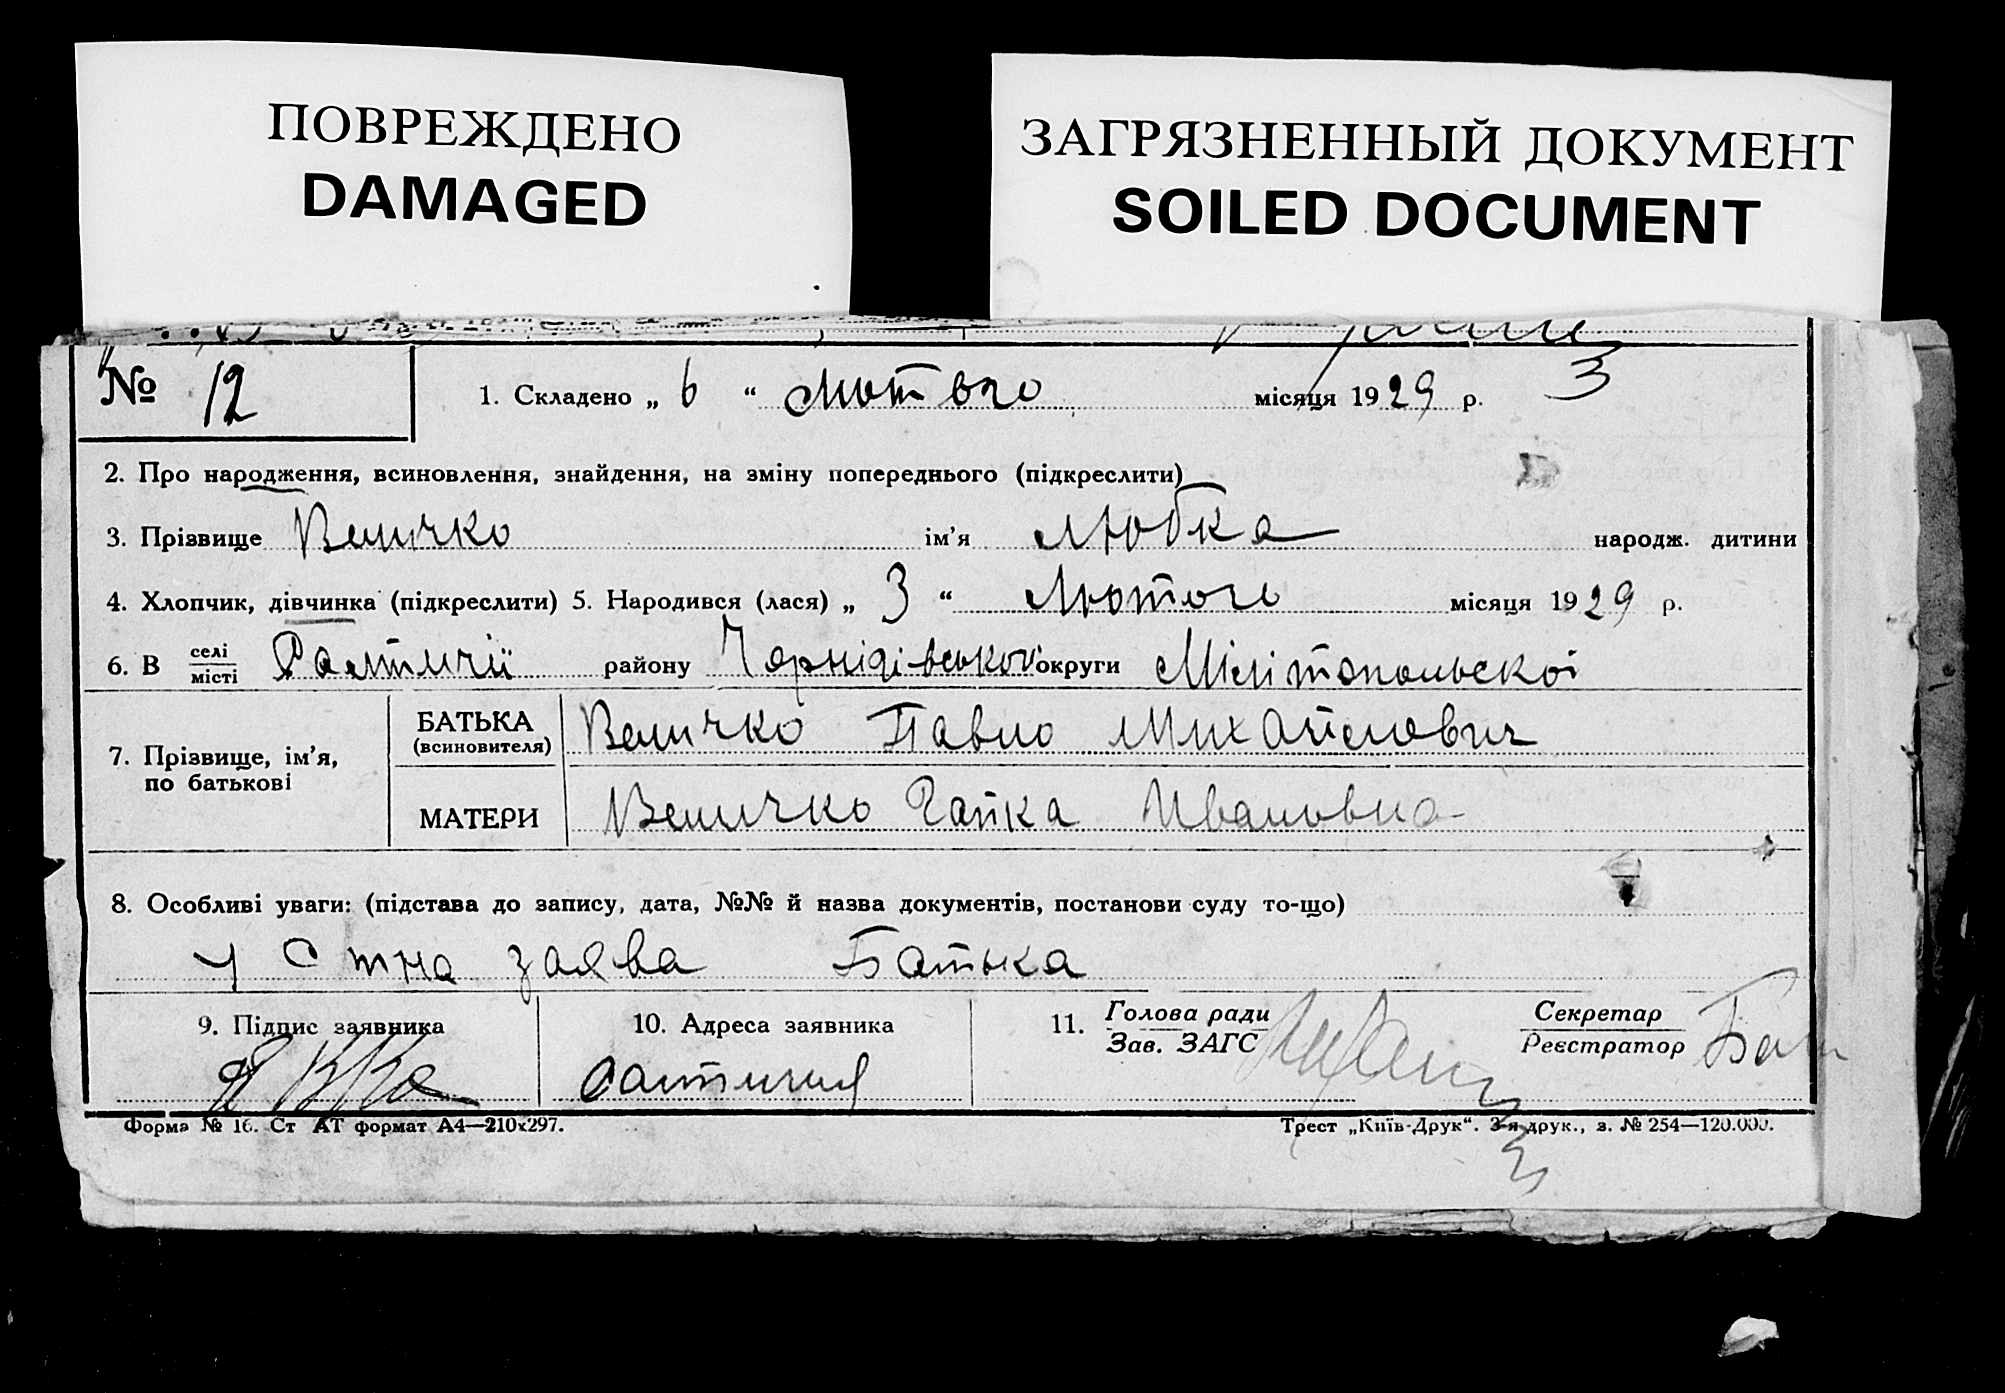 ПОВРЕЖДЕНО
DAMAGED
ЗАГРЯЗНЕННЫЙ ДОКУМЕНТ
SOILED DOCUMENT
№ 12
1. Складено „ 6 “ Лютого місяця 1929 р. 3
2. Про народження, всиновлення, знайдення, на зміну попереднього (підкреслити)
3. Прізвище Величко ім’я Любка народж. дитини
4. Хлопчик, дівчинка (підкреслити) 5. Народився (лася) „ 3 “ Лютого місяця 1929 р.
6. В селі місті району округи Мілітопольскоі
7. Прізвище, ім’я, по батькові
БАТЬКА (всиновителя) Величко Павло Михайлович
МАТЕРИ Величко Гапка Ивановна
8. Особливі уваги: (підстава до запису, дата, №№ й назва документів, постанови суду то-що)
устна заява Батька
9. Підпис заявника
10. Адреса заявника
11. Голова ради Зав. ЗАГС
Секретар Реєстратор
Форма № 16. Ст АТ формат А4—210х297.
Трест „Київ-Друк“. 3-я друк., з. № 254—120.000.